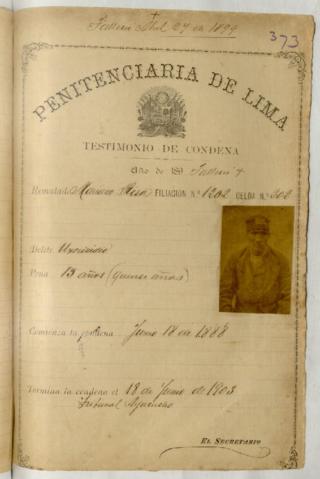 Falleció Abril 27 de 1899
373
PENITENCIARIA DE LIMA
TESTIMONIO DE CONDENA
Año de 18
Rematado Mariano FILIACIÓN N.º 1202 CELDA N.º
Delito Uxoricidio
Pena 15 años (quince años)
Comienza la condena Junio 18 de 1888
Termina la condena el 18 de Junio de 1903
Tribunal Ayacucho
EL SECRETARIO